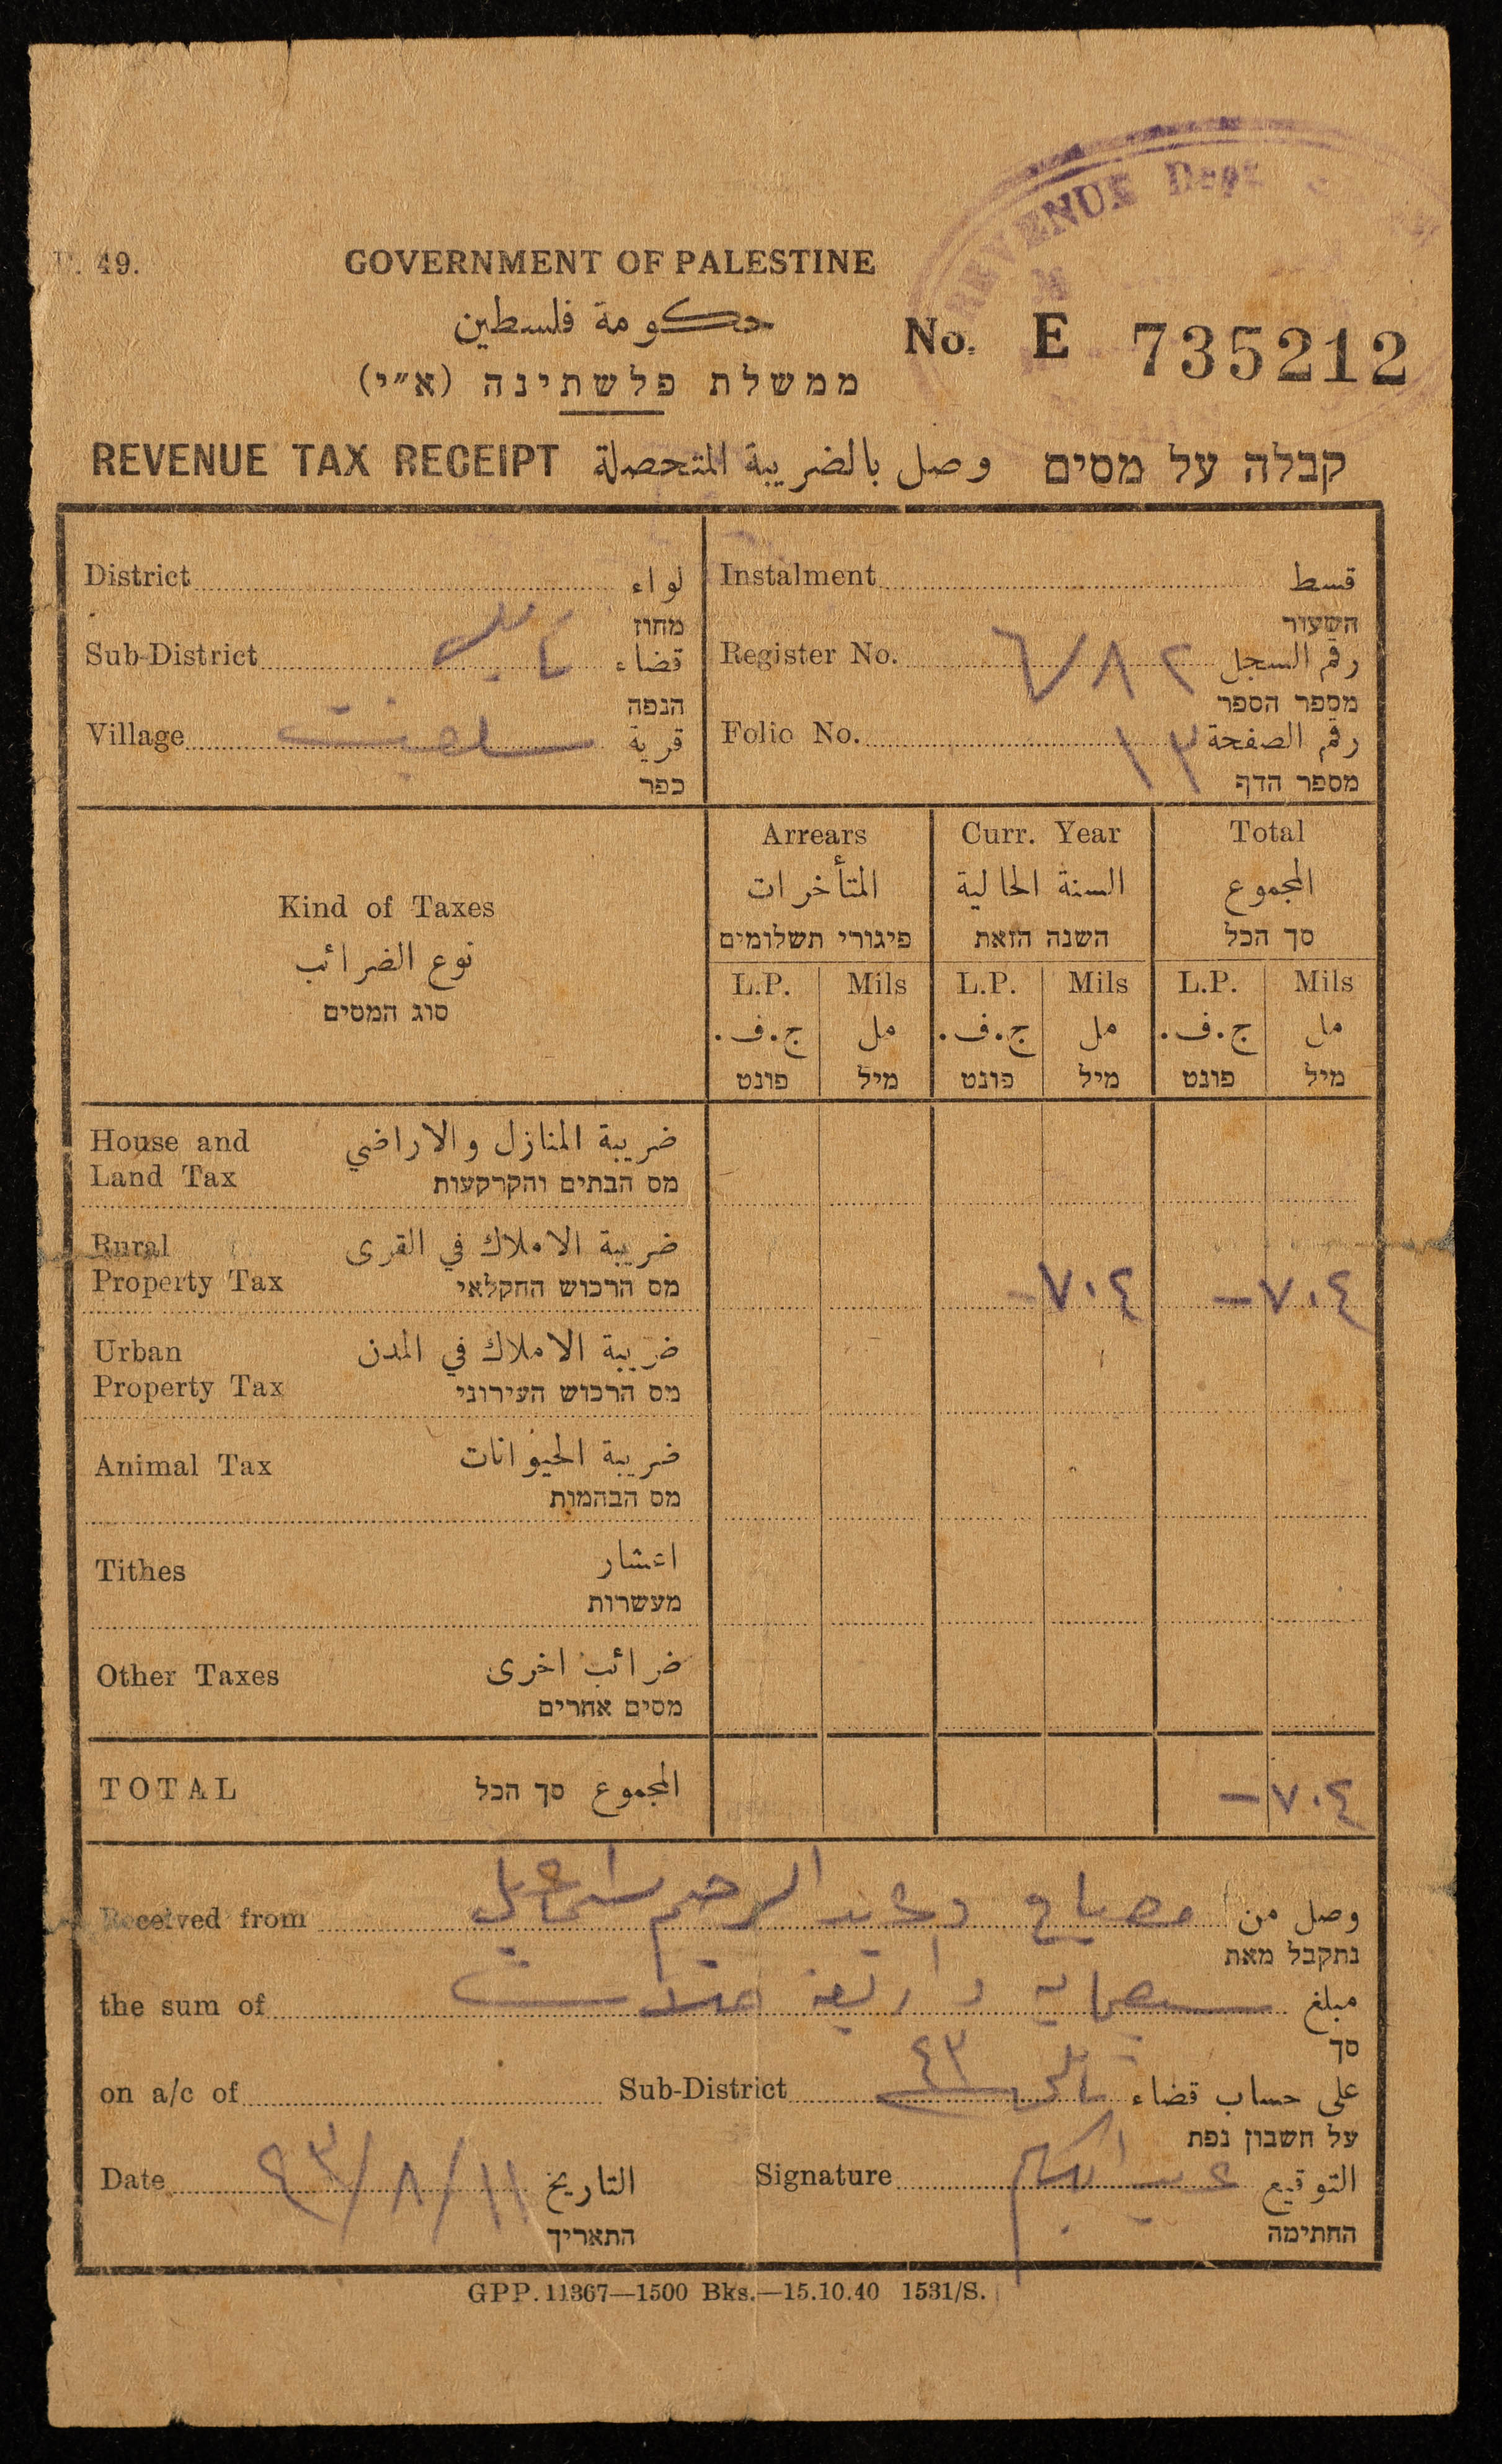 REVENUE Dept
49.
GOVERNMENT OF PALESTINE
حكومة فلسطين
No. E 735212
ממשלת פלשתינה (א״י)
REVENUE TAX RECEIPT وصل بالضريبة المتحصلة קבלה על מסים
District لواء
מחוז
Sub-District قضاء نابلس
הנפה
Village قرية سلفيت
כפר
Instalment قسط
השעור
Register No. رقم السجل ٦٧٨٢
מספר הספר
Folio No. رقم الصفحة ١٣
מספר הדף
Kind of Taxes
نوع الضرائب
סוג המסים
Arrears
المتأخرات
פיגורי תשלומים
Curr. Year
السنة الحالية
השנה הזאת
Total
المجموع
סך הכל
L.P. Mils L.P. Mils L.P. Mils
ج.ف. مل ج.ف. مل ج.ف. مل
פונט מיל פונט מיל פונט מיל
House and ضريبة المنازل والاراضي
Land Tax מס הבתים והקרקעות
Rural ضريبة الاملاك في القرى
Property Tax מס הרכוש החקלאי -٧٠٤ -٧٠٤
Urban ضريبة الاملاك في المدن
Property Tax מס הרכוש העירוני
Animal Tax ضريبة الحيوانات
מס הבהמות
Tithes اعشار
מעשרות
Other Taxes ضرائب اخرى
מסים אחרים
TOTAL المجموع סך הכל -٧٠٤
Received from وصل من مصباح وعبد الرحيم اسماعيل
נתקבל מאת
the sum of مبلغ سبعماية واربعة
סך
on a/c of Sub-District على حساب قضاء نابلس ٤٣
על חשבון נפת
Date التاريخ ١١/٨/٤٣
התאריך
Signature التوقيع
החתימה
GPP.11367—1500 Bks.—15.10.40 1531/S.